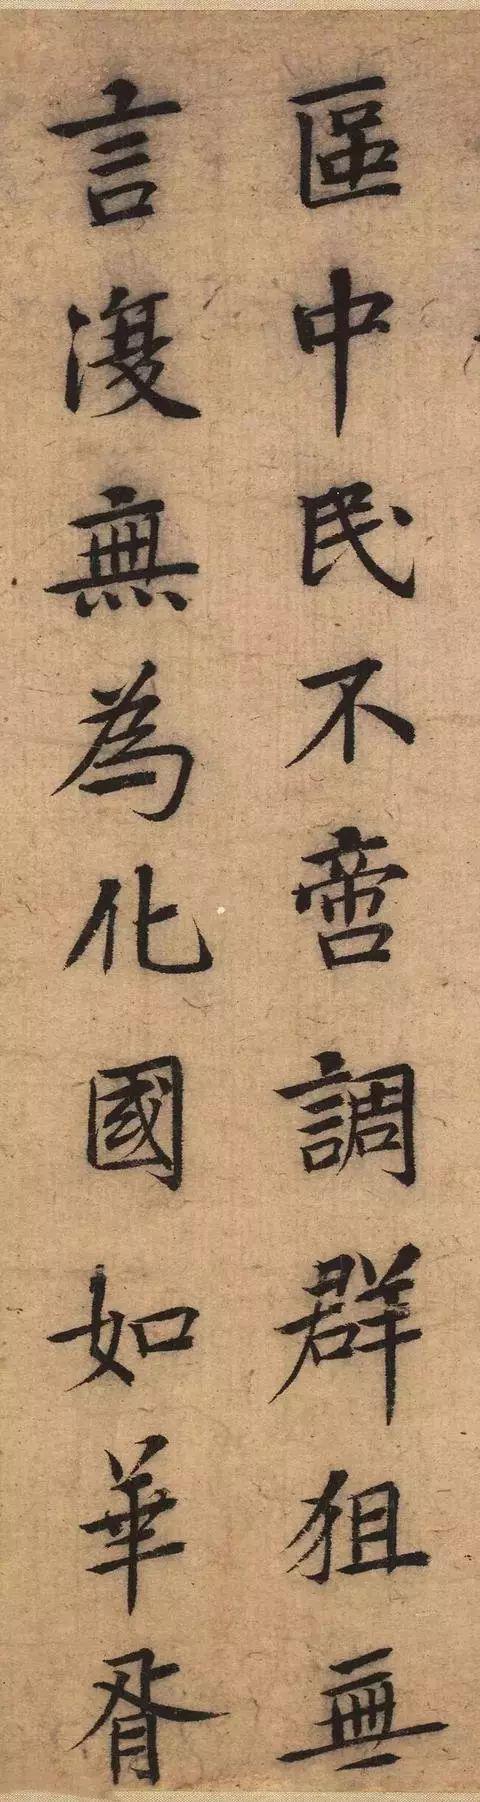 區中民不啻調群狙無
言復無為化國如華胥